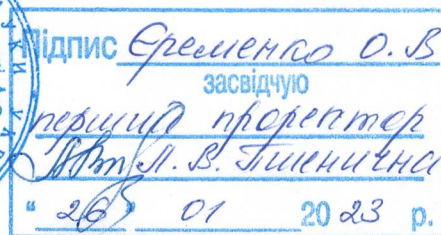 Підпис Єременко О. В
засвідчую
перший проректор
Л. В. Пшенична
“ 26 ” 01 20 23 р.